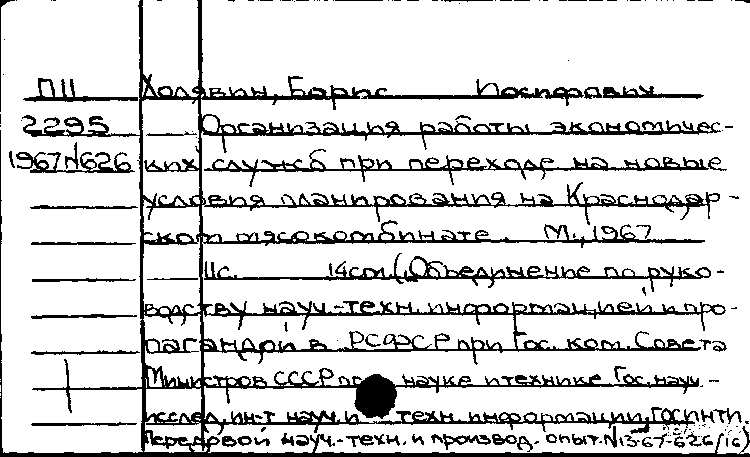 ПII Холявин, Борис Иосифович
2295 Организация работы экономичес-
1967 N626 ких служб при переходе на новые
условия планирования на Краснодар-
ском мясокомбинате. М., 1967
11с. 14см. (Объединение по руко-
водству науч.-техн. информацией и про-
пагандой в РСФСР при Гос. ком. Совета
Министров СССР по науке и технике Гос. науч-
исслед. ин-т науч. и техн. информации. ГОСИНТИ.
Передовой науч.-техн. и производ. опыт. N13-67-626/16)